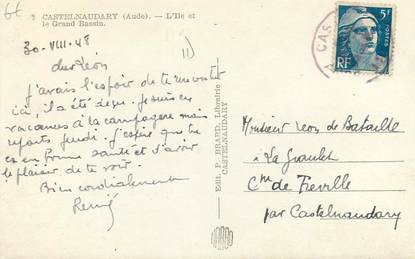 CASTELNAUDARY (Aude). — L'Ile et
le Grand Bassin.
30-VIII-48
cher Léon
j'avais l'espoir de te rencontrer
ici, il a été déçu. Je suis en
vacances à la campagne mais
repars jeudi. J'espère que tu
es en bonne santé et d'avoir
le plaisir de te voir.
Bien cordialement
René
Edit. P. BRARD, Librairie
CASTELNAUDARY
5F
POSTES
RF
CAS
Monsieur Léon de Bataille
à La
Cne de Tréville
par Castelnaudary